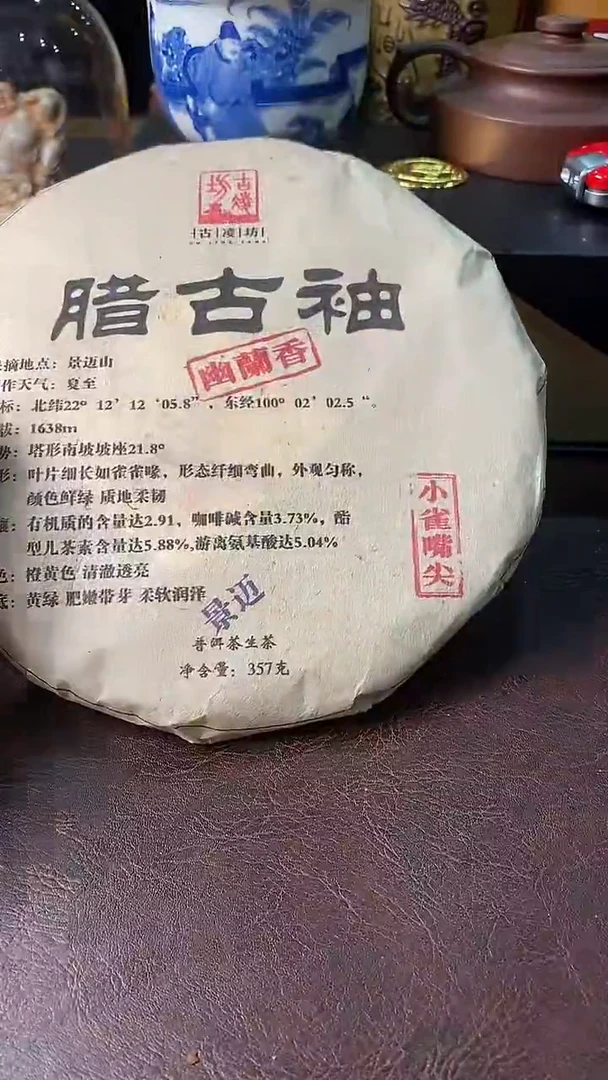 古凌坊
腊古袖
幽蘭香
采摘地点：景迈山
作天气：夏至
标：北纬22° 12’ 12 ‘05.8”，东经100° 02’ 02.5 “。
拔：1638m
势：塔形南坡坡座21.8°
形：叶片细长如雀雀喙，形态纤细弯曲，外观匀称，
颜色鲜绿 质地柔韧
壤：有机质的含量达2.91，咖啡碱含量3.73%，酯
型儿茶素含量达5.88%,游离氨基酸达5.04%
色：橙黄色 清澈透亮
底：黄绿 肥嫩带芽 柔软润泽
小雀嘴尖
景迈
普洱茶生茶
净含量：357克